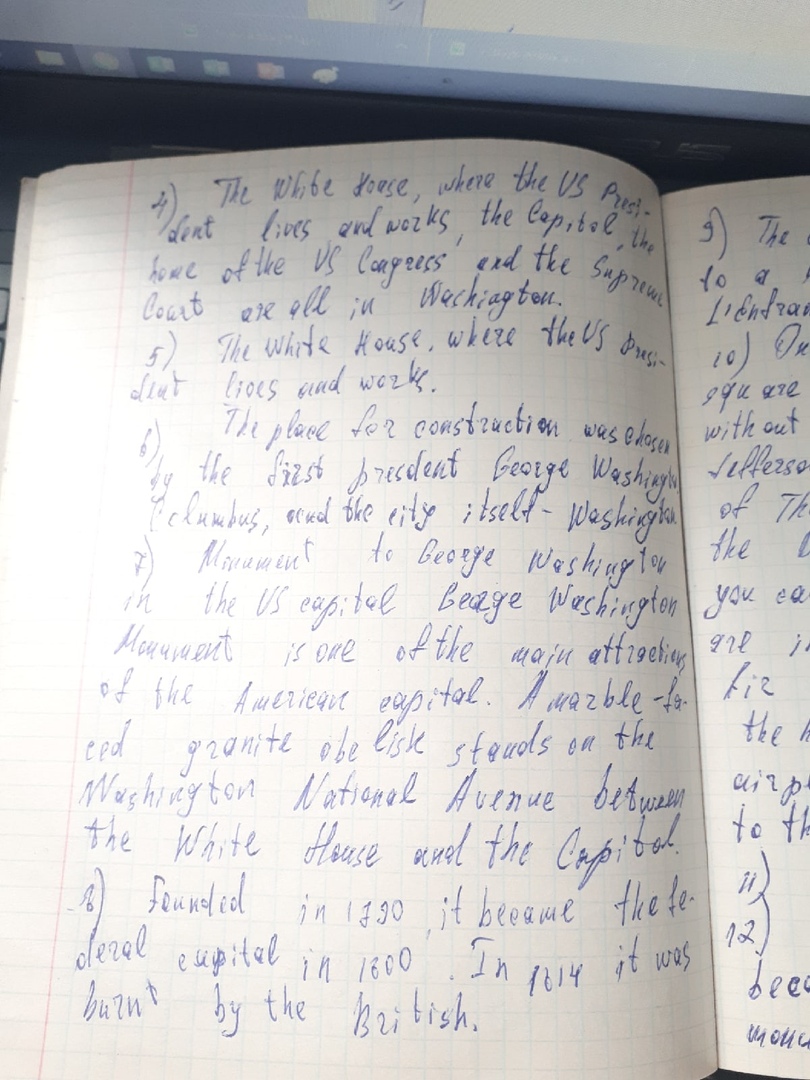 4) The White House, where the US Presi-
dent lives and works, the Capitol, the
home of the US Congress and the Supreme
Court are all in Washington.
5) The White House, where the US Presi-
dent lives and works.
6) The place for construction was chosen
by the first presdent George Washington
Columbus, and the city itself - Washington
7) Monument to George Washington
in the US capital George Washington
Monument is one of the main attractions
of the American capital. A marble-fa-
ced granite obelisk stands on the
Washington National Avenue between
the White House and the Capitol.
8) Founded in 1790, it became the fe-
deral capital in 1800. In 1814 it was
burnt by the British.
9) The
to a
L'Enfra
10) On
square
without
Jefferso
of Th
the
you ca
are i
Air
the h
airpl
to th
11)
12)
beca
monu